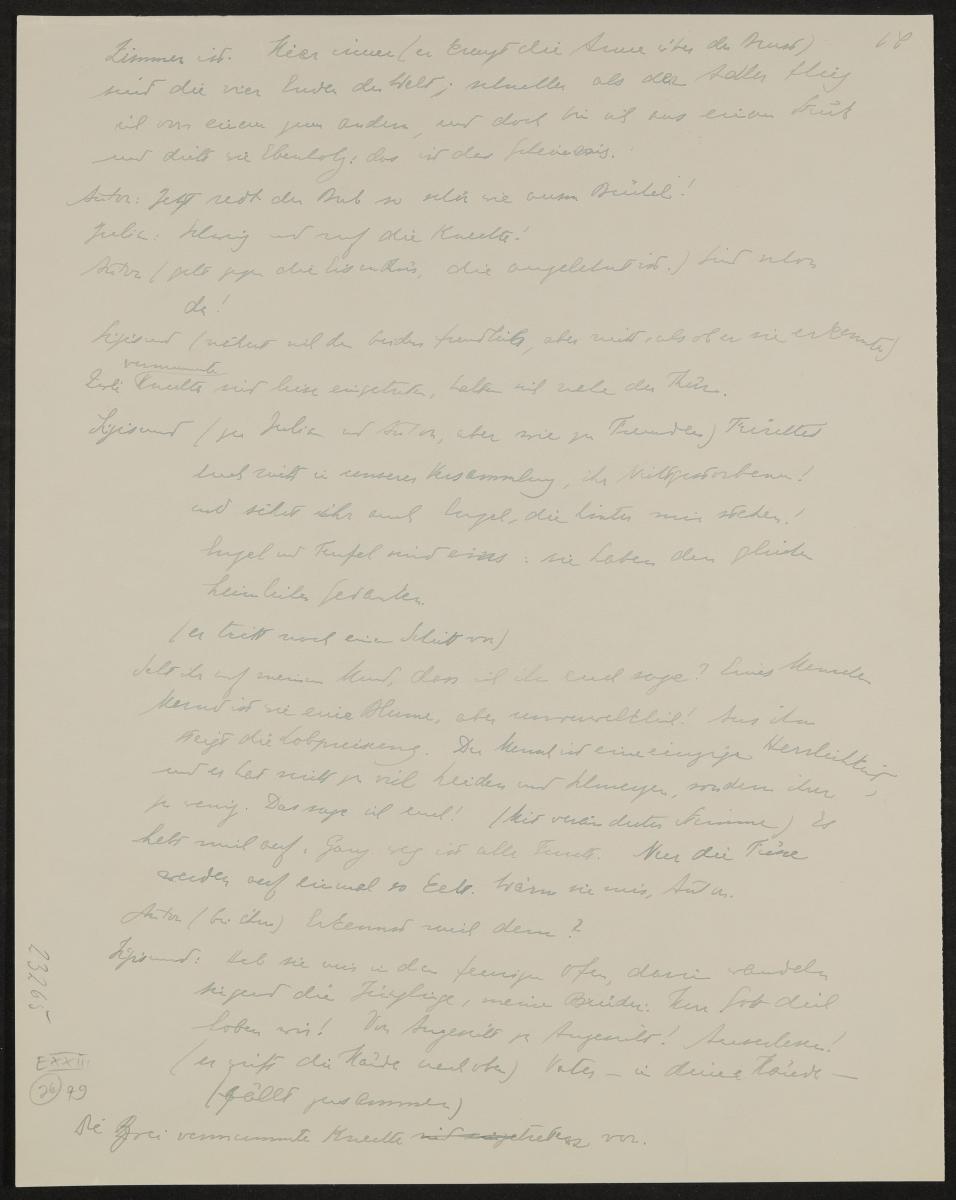 68
Zimmer ist. Hier innen (er kreuzt die Arme über der Brust)
sind die vier Enden der Welt; schneller als der Adler flieg
ich von einem zum andern, und doch bin ich aus einem Stück
und dicht wie Ebenholz: das ist das Geheimnis.
Anton: Jetzt redt der Bub so schön wie ausm Büchel!
Julian: Schweig und ruf die Knechte!
Anton (geht gegen die Eisenthür, die angelehnt ist.) Sind schon
da!
Sigismund (nähert sich den beiden freundlich, aber nicht, als ob er sie erkennte)
vermummte
Zwei Knechte sind leise eingetreten, halten sich nahe der Thür.
Sigismund (zu Julian und Anton, aber wie zu Fremden) Fürchtet
euch nicht in unserer Versammlung, ihr Mitgestorbenen!
und scheut ihr euch Engel, die hinter mir stehen!
Engel und Teufel sind eins: sie haben den gleichen
heimlichen Gedanken.
(er tritt noch einen Schritt vor)
Seht ihr auf meinen Mund, dass ich ihn euch sage? Eines Menschen
Mund ist wie eine Blume, aber unverwelklich! Aus ihm
steigt die Lobpreisung. Der Mensch ist eine einzige Herrlichkeit,
und er hat nicht zu viel Leiden und Schmerzen, sondern ihrer
zu wenig. Das sage ich euch! (Mit veränderter Stimme) Es
hebt mich auf. Ganz weg ist alle Furcht. Nur die Füsse
werden auf einmal so kalt. Wärm sie mir, Anton.
Anton (bei ihm) Erkennst mich denn?
Sigismund: Heb sie mir in den feurigen Ofen, darin wandeln
singend die Jünglinge, meine Brüder: Herr Gott dich
loben wir! Von Angesicht zu Angesicht! Auserlesen!
(er wirft die Hände nach oben) Vater – in deine Hände –
(fällt zusammen)
Die zwei vermummte Knechte sind eingetreten vor.
23265
EXXIII
26
99